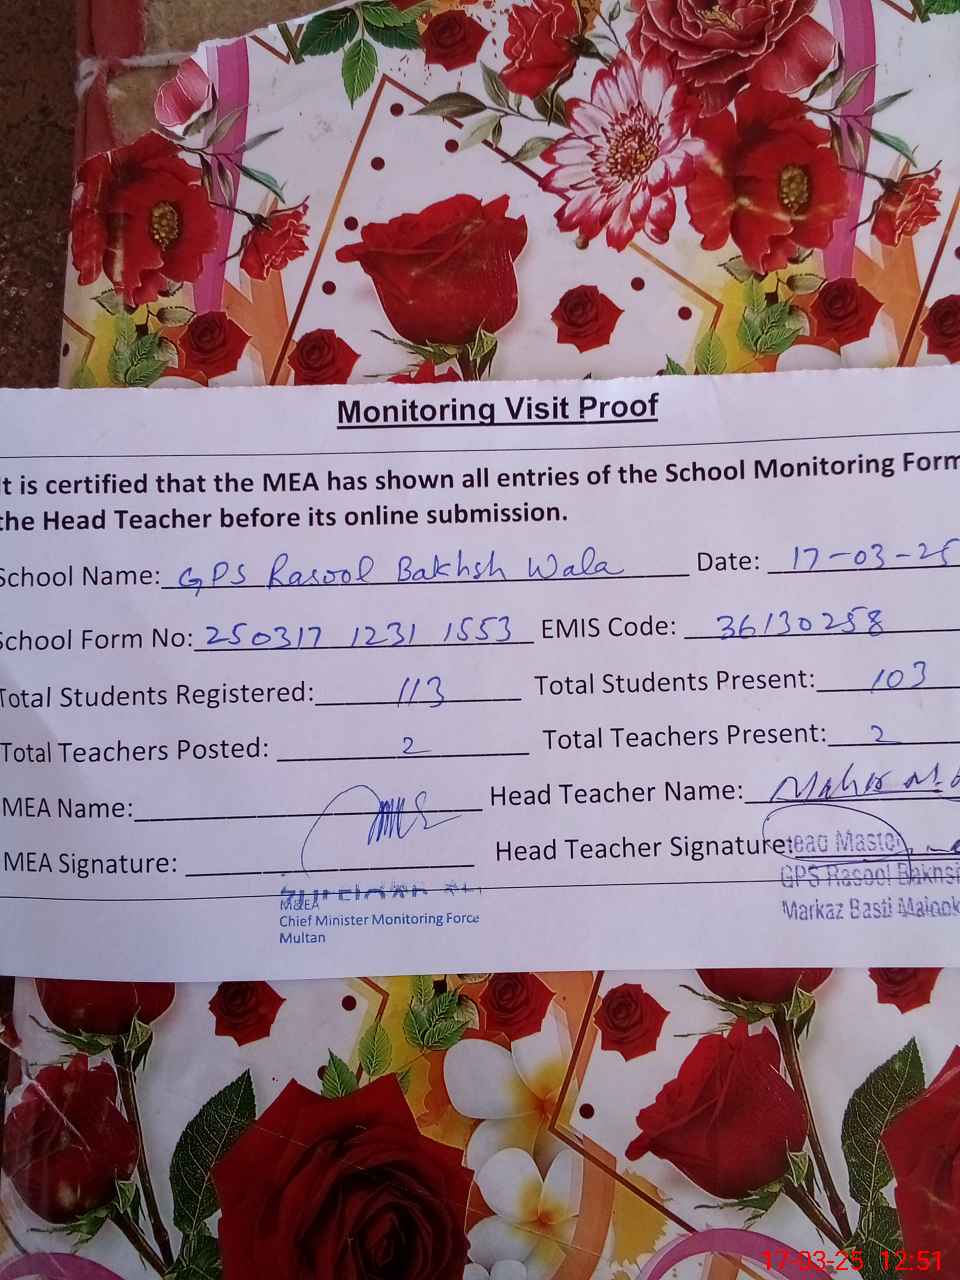 Monitoring Visit Proof
It is certified that the MEA has shown all entries of the School Monitoring Form
the Head Teacher before its online submission.
School Name: GPS Rasool Bakhsh Wala Date: 17-03-25
School Form No: 250317 1231 1553 EMIS Code: 36130258
Total Students Registered: 113 Total Students Present: 103
Total Teachers Posted: 2 Total Teachers Present: 2
MEA Name: Head Teacher Name: Maher M.
MEA Signature: Head Teacher Signature:
Head Master
GPS Rasool Bakhsh
Markaz Basti
M&EA
Chief Minister Monitoring Force
Multan
17-03-25 12:51